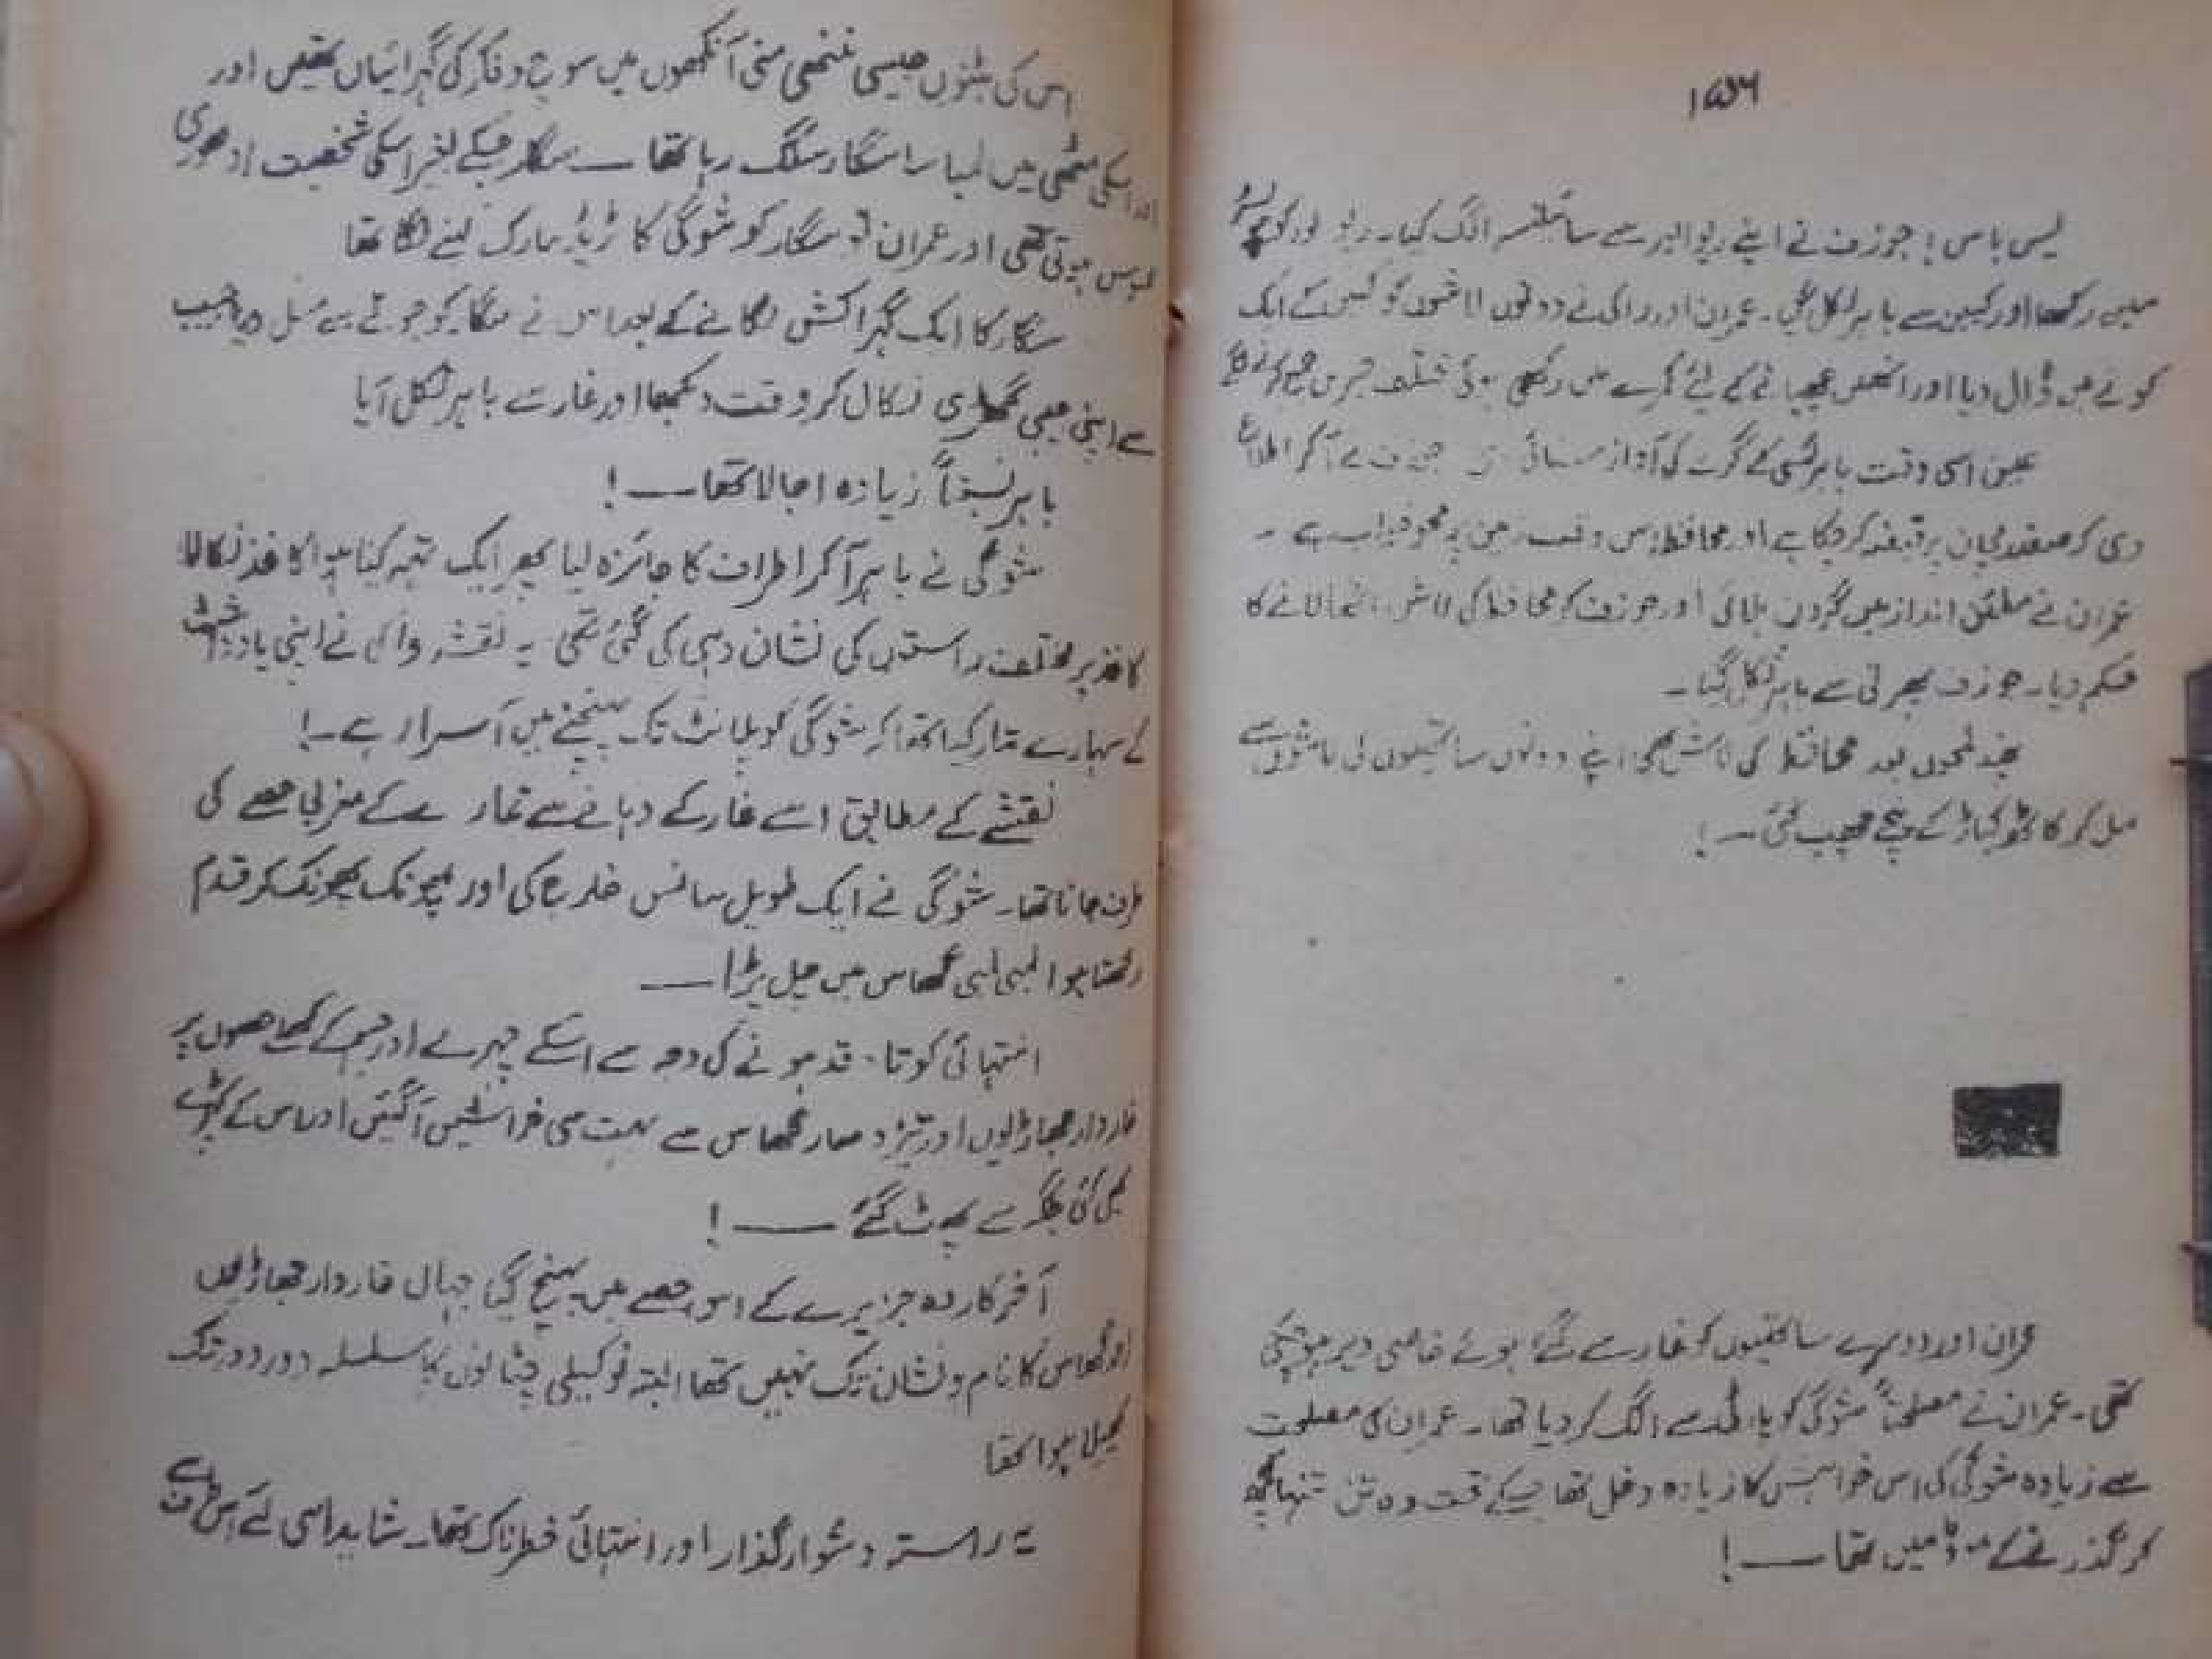 ۱۵۶
یس باس! جوزف نے اپنے ریوالور سے سائیلنسر الگ کیا۔ ریوالور کو
میں رکھا اور کیبن سے باہر نکل گیا۔ عمران اور راکی نے دونوں لاشوں کو کیبن کے ایک
کونے میں ڈال دیا اور انھیں چھپانے کے لئے کمرے میں رکھی ہوئی مختلف چیزیں جمع کرنے لگے
عین اسی وقت باہر کسی کے گرنے کی آواز سنائی دی جوزف نے آکر اطلاع
دی کہ صفدر مچان پر قبضہ کر چکا ہے اور محافظ اس وقت زمین پر محو خواب ہے۔
عمران نے مطمئن انداز میں گردن ہلائی اور جوزف کو محافظ کی لاش اٹھا لانے کا
حکم دیا۔ جوزف پھرتی سے باہر نکل گیا۔
چند لمحوں بعد محافظ کی لاش بھی اپنے دونوں ساتھیوں کی لاشوں سے
مل کر کاٹھ کباڑ کے نیچے چھپ گئی۔!
عمران اور دوسرے ساتھیوں کو غار سے گئے ہوئے خاصی دیر ہو چکی
تھی۔ عمران نے مصلحتاً شوگی کو پارٹی سے الگ کر دیا تھا۔ عمران کی مصلحت
سے زیادہ شوگی کی اس خواہش کا زیادہ دخل تھا جسکے تحت وہ تن تنہا کچھ
کر گذرنے کے موڈ میں تھا ـــ!
اس کی بٹنوں جیسی ننھی منی آنکھوں میں سوچ و فکر کی گہرائیاں تھیں اور
اسکی مٹھی میں لمبا سا سگار سلگ رہا تھا ـــ سگار جسکے بغیر اسکی شخصیت ادھوری
ہوتی تھی اور عمران تو سگار کو شوگی کا ٹریڈ مارک کہنے لگا تھا
سگار کا ایک گہرا کش لگانے کے بعد اس نے سگار کو جوتے سے مسل دیا جیب
سے اپنی جیبی گھڑی نکال کر وقت دیکھا اور غار سے باہر نکل آیا
باہر نسبتاً زیادہ اجالا تھا ـــ!
شوگی نے باہر آ کر اطراف کا جائزہ لیا پھر ایک تہہ کیا ہوا کاغذ نکالا
کاغذ پر مختلف راستوں کی نشان دہی کی گئی تھی یہ نقشہ راکی نے اپنی یادداشت
کے سہارے تیار کیا تھا کہ شوگی کو پلانٹ تک پہنچنے میں آسرا رہے۔!
نقشے کے مطابق اسے غار کے دہانے سے غار کے مغربی حصے کی
طرف جانا تھا۔ شوگی نے ایک طویل سانس خارج کی اور پھونک پھونک کر قدم
رکھتا ہوا لمبی لمبی گھاس میں چل پڑا ـــ
انتہائی کوتاہ قد ہونے کی وجہ سے اسکے چہرے اور جسم کے کھلے حصوں پر
خاردار جھاڑیوں اور تیز دھار گھاس سے بہت سی خراشیں آ گئیں اور اس کے کپڑے
بھی کئی جگہ سے پھٹ گئے ـــ!
آخر کار وہ جزیرے کے اس حصے میں پہنچ گیا جہاں خاردار جھاڑیوں
اور گھاس کا نام و نشان تک نہیں تھا البتہ نوکیلی چٹانوں کا سلسلہ دور دور تک
پھیلا ہوا تھا
یہ راستہ دشوار گذار اور انتہائی خطرناک تھا۔ شاید اسی لئے اس طرف سے